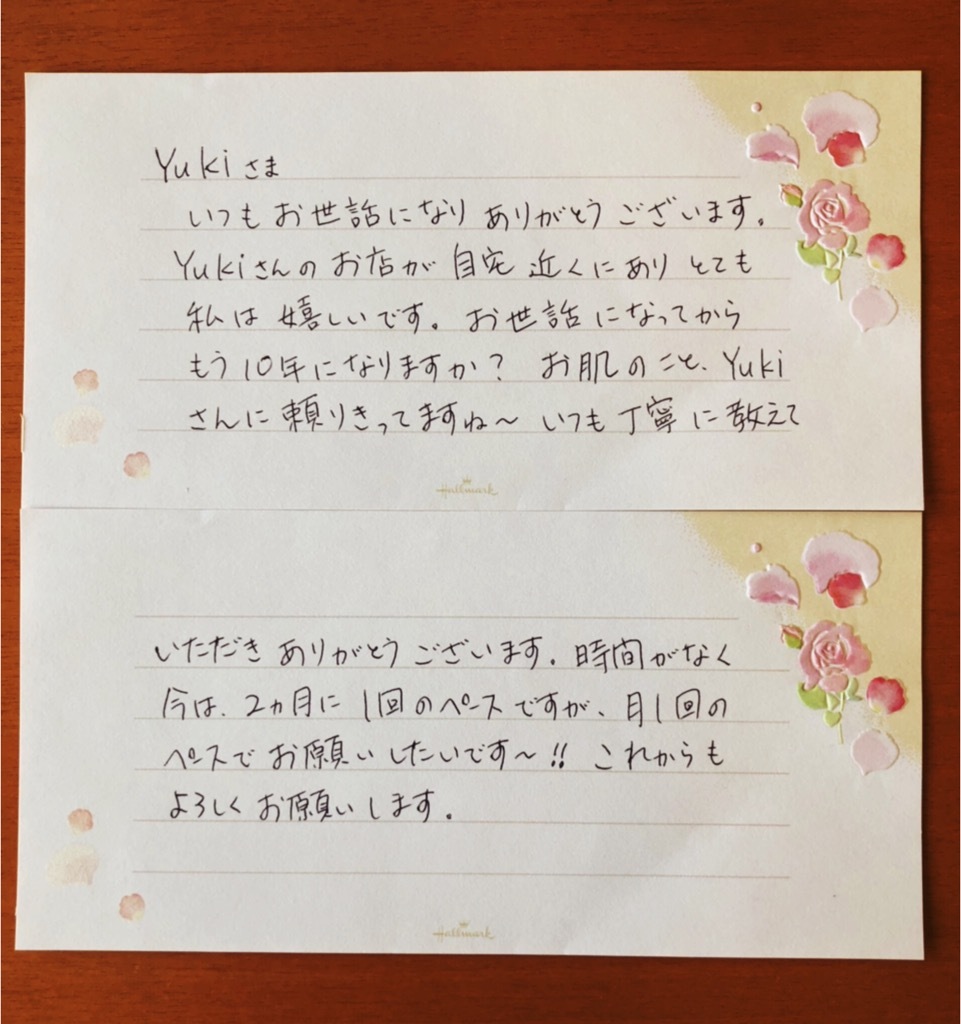 Yukiさま
いつもお世話になりありがとうございます。
Yukiさんのお店が自宅近くにありとても
私は嬉しいです。お世話になってから
もう10年になりますか？ お肌のこと、Yuki
さんに頼りきってますね～いつも丁寧に教えて
Hallmark
いただきありがとうございます。時間がなく
今は、2ヵ月に1回のペースですが、月1回の
ペースでお願いしたいです～!! これからも
よろしくお願いします。
Hallmark